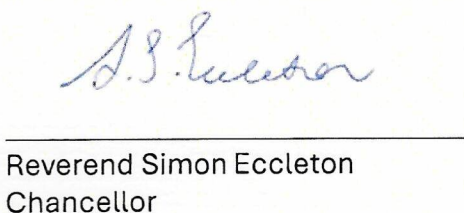 S. J. Eccleton
Reverend Simon Eccleton
Chancellor